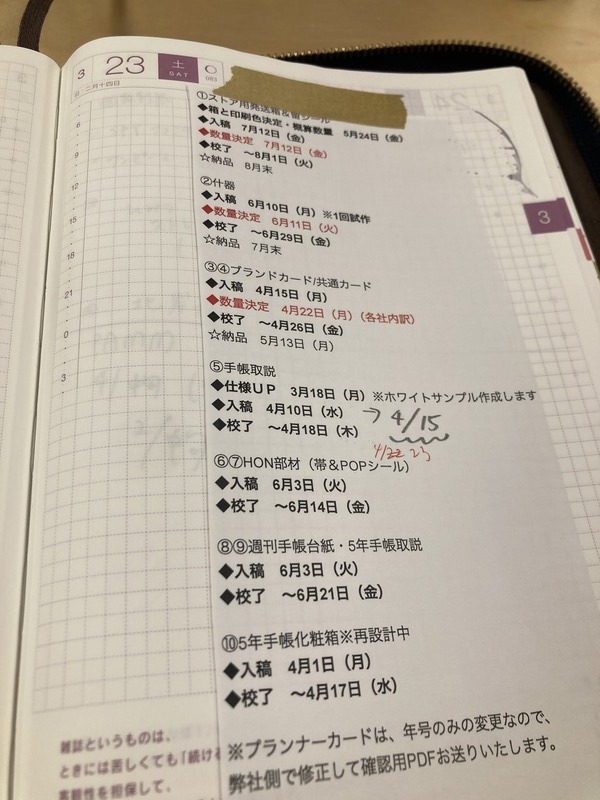 3 23 土 SAT
083
二月十四日
①ストア用発送箱&留シール
◆箱と印刷色決定・概算数量 5月24日(金)
◆入稿 7月12日(金)
◆数量決定 7月12日(金)
◆校了 ~8月1日(火)
☆納品 8月末
②什器
◆入稿 6月10日(月)※1回試作
◆数量決定 6月11日(火)
◆校了 ~6月29日(金)
☆納品 7月末
③④ブランドカード/共通カード
◆入稿 4月15日(月)
◆数量決定 4月22日(月)(各社内訳)
◆校了 ~4月26日(金)
☆納品 5月13日(月)
⑤手帳取説
◆仕様UP 3月18日(月)※ホワイトサンプル作成します
◆入稿 4月10日(水) → 4/15
◆校了 ~4月18日(木)
4/22 23
⑥⑦HON部材(帯&POPシール)
◆入稿 6月3日(火)
◆校了 ~6月14日(金)
⑧⑨週刊手帳台紙・5年手帳取説
◆入稿 6月3日(火)
◆校了 ~6月21日(金)
⑩5年手帳化粧箱※再設計中
◆入稿 4月1日(月)
◆校了 ~4月17日(水)
※プランナーカードは、年号のみの変更なので、
弊社側で修正して確認用PDFお送りいたします。
6
9
12
15
18
21
0
3
雑誌というものは、
ときには苦しくても「続ける
客観性を担保して、
3